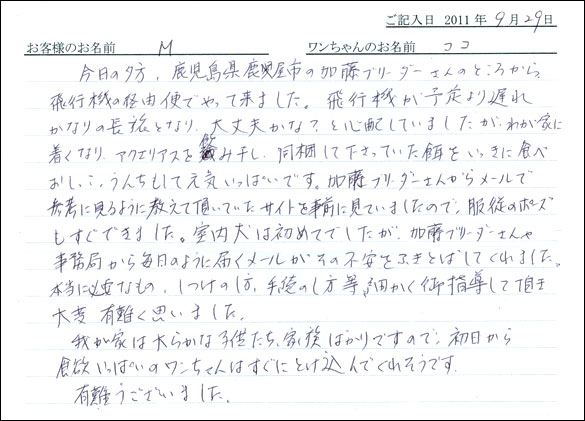 ご記入日 2011年 9月29日
お客様のお名前 M ワンちゃんのお名前 ココ
今日の夕方、鹿児島県鹿児屋市の加藤ブリーダーさんのところから、
飛行機の経由便でやって来ました。飛行機が予定より遅れ
かなりの長旅となり、大丈夫かな?と心配していましたが、わが家に
着くなり、アクエリアスを飲み干し、同梱して下さっていた餌をいっきに食べ
おしっこ、うんちもして元気いっぱいです。加藤ブリーダーさんからメールで
参考に見るように教えて頂いていたサイトを事前に見ていましたので、服従のポーズ
もすぐできました。室内犬は初めてでしたが、加藤ブリーダーさんや
事務局から毎日のように届くメールがその不安をふきとばしてくれました。
本当に必要なもの、しつけの仕方、手続の仕方等、細かく御指導して頂き
大変有難く思いました。
我が家は大らかな子供たち、家族ばかりですので、初日から
食欲いっぱいのワンちゃんはすぐにとけ込んでくれそうです。
有難うございました。